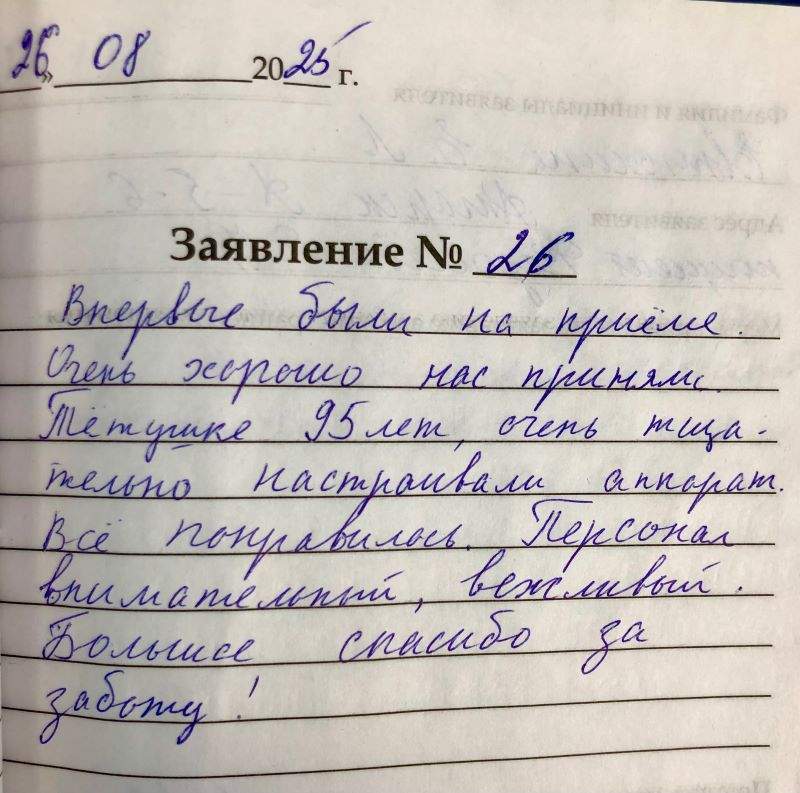 26» 08 2025 г.
Заявление № 26
Впервые были на приёме.
Очень хорошо нас приняли.
Тётушке 95 лет, очень тща-
тельно настраивали аппарат.
Всё понравилось. Персонал
внимательный, вежливый.
Большое спасибо за
заботу!
Фамилия и инициалы заявителя
Адрес заявителя